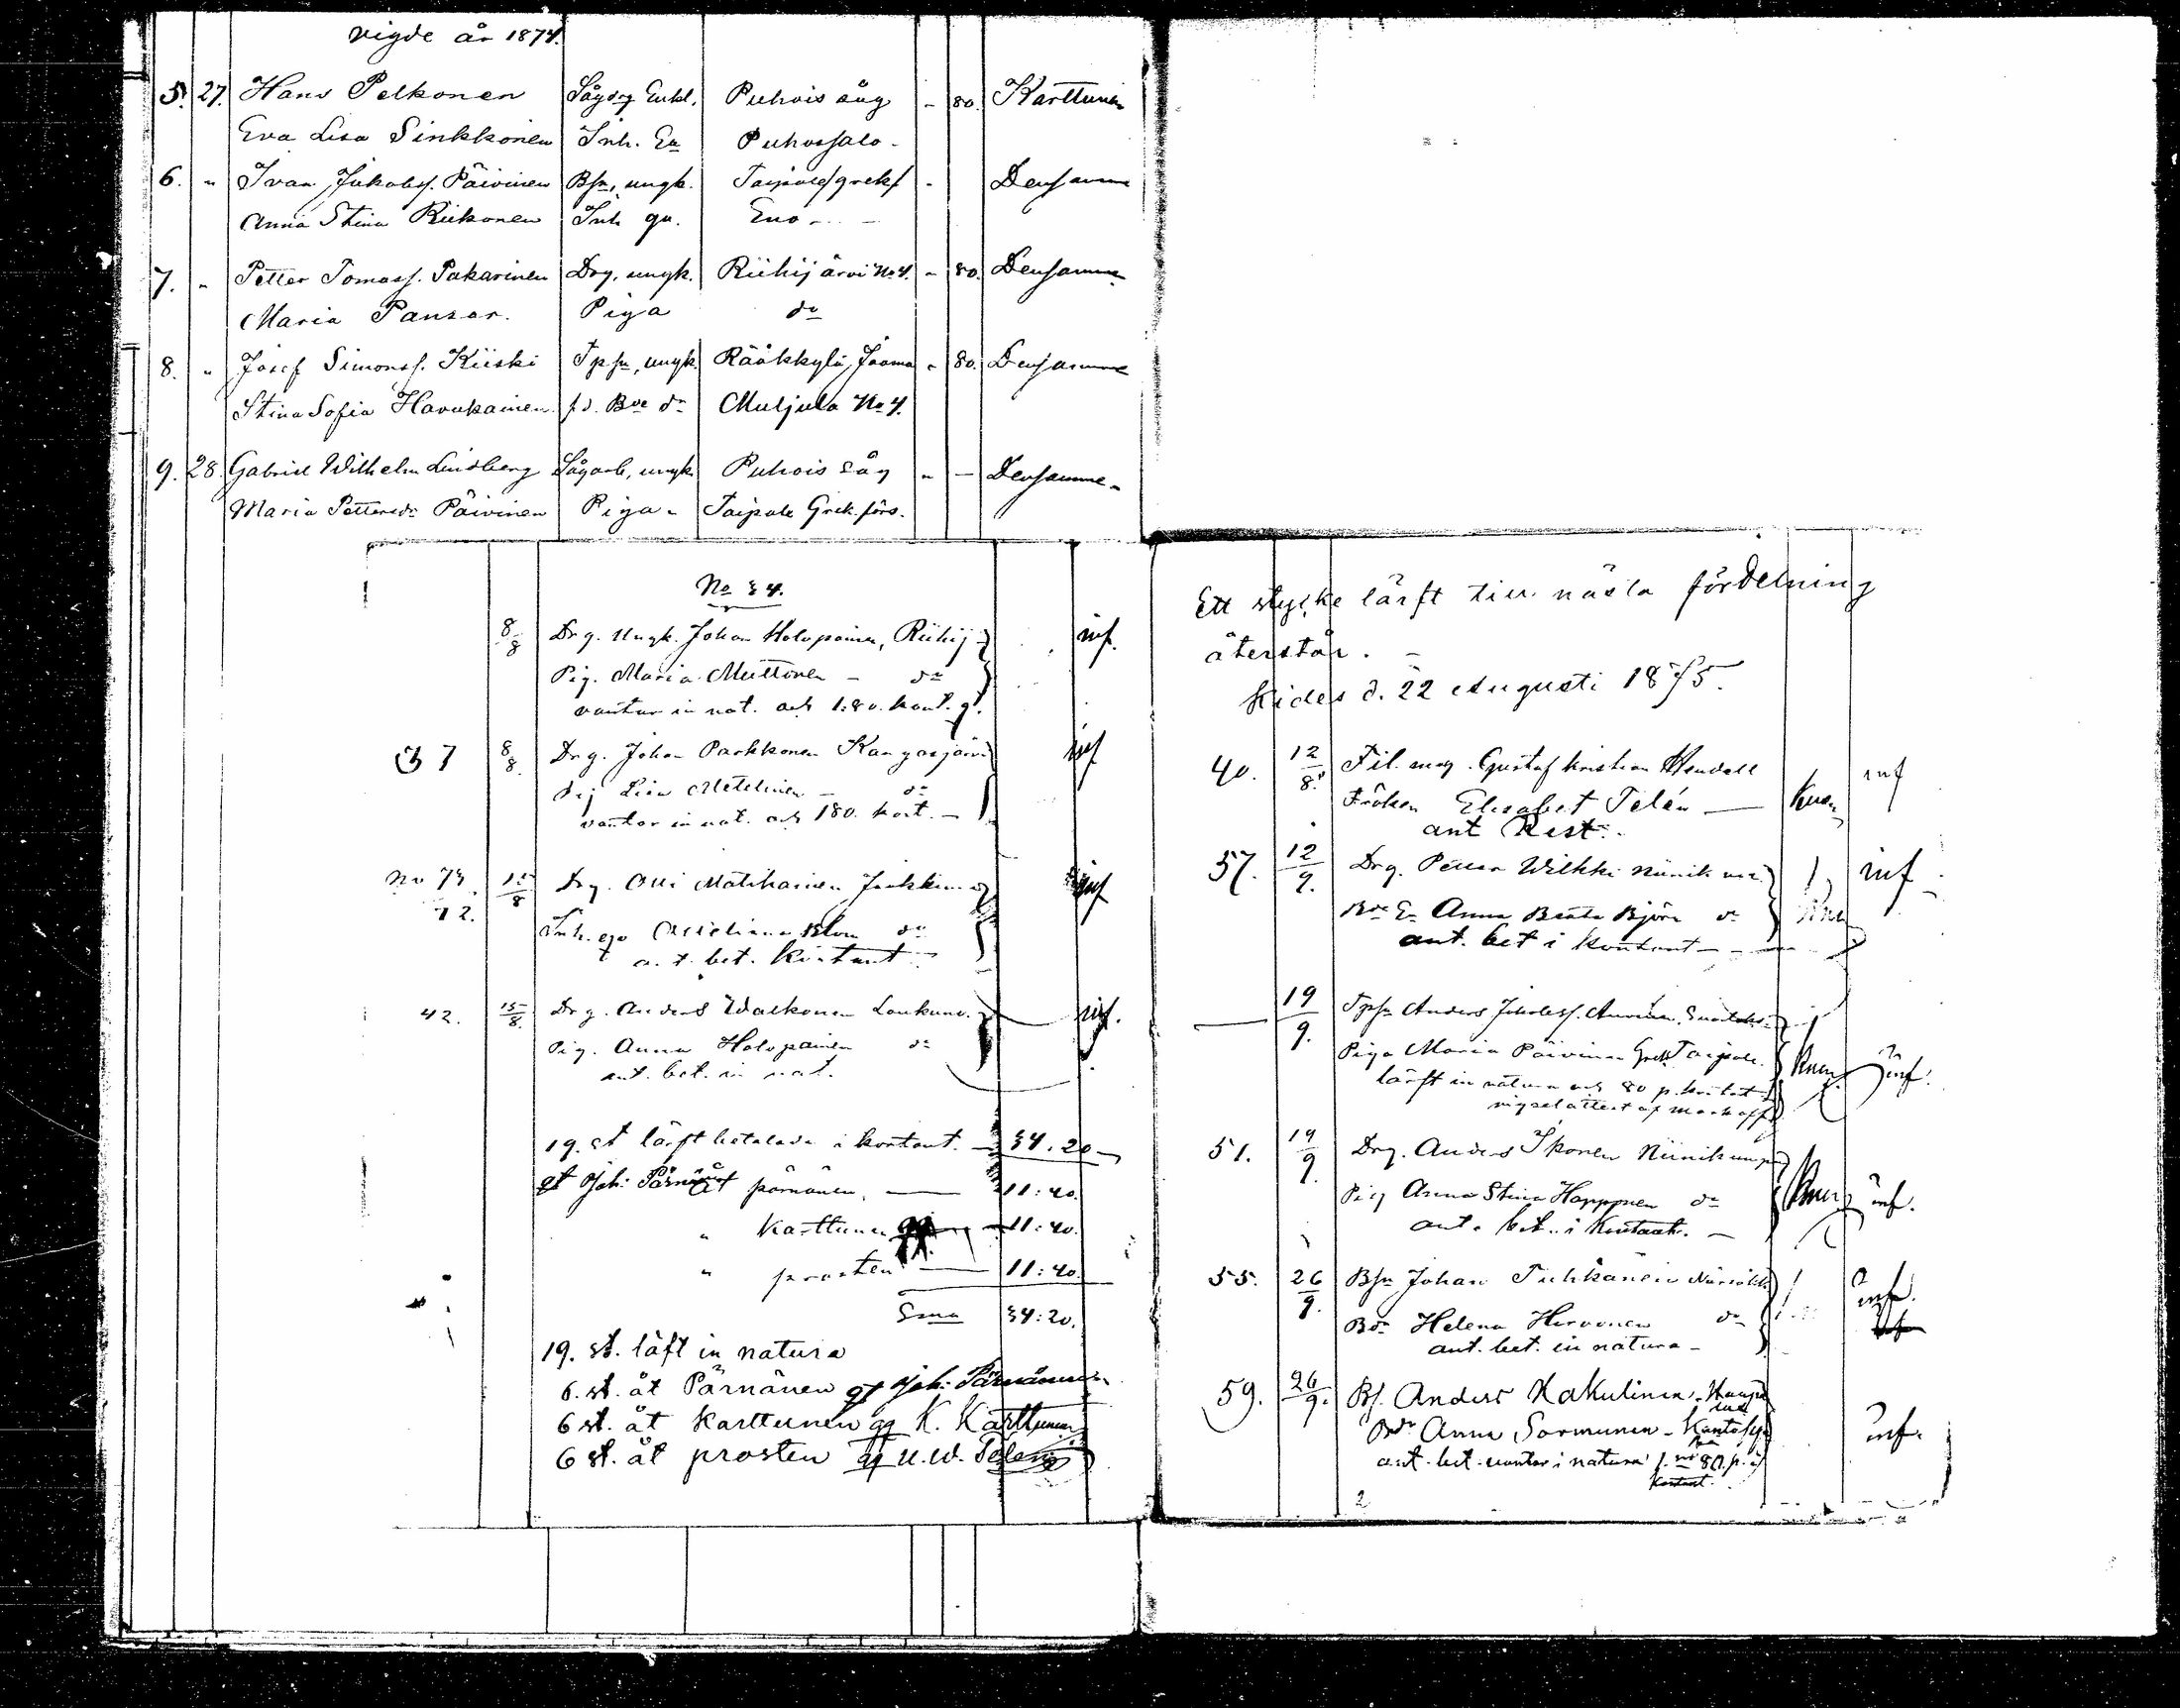 vigde år 1874.
5. 27. Hans Pelkonen Sågdrg Enkl. Puhois såg - 80. Karttunen
Eva Lisa Sinkkonen Inh. Ea Puhossalo -
6. " Ivan Jakobss. Päivinen Bsn, ungk. Taipale grekf - Densamme
Anna Stina Riikonen Inh. Eno -
7. " Petter Tomass. Pakarinen Drg, ungk. Riihijärvi No 4. - 80. Densamme
Maria Pansar. Piga do
8. " Josef Simonss. Kiiski Tpsn, ungk. Rääkkylä, Jaama - 80. Densamme
Stina Sofia Havukainen. f.d. Bde dr Muljula No 4.
9. 28. Gabriel Wilhelm Lindberg Sågarb, ungk. Puhois såg " - Densamme -
Maria Pettersdr Päivinen Piga - Taipale Grek. förs.
No 34.
8/8 Drg. Ungk. Johan Holopainen, Riihij - inf.
Pig. Maria Muttonen - do
vantar in nat. och 1:80. kont. gt.
37 8/8. Drg. Johan Parkkonen Kangasjärvi inf
Pig Lisa - do
vantar in nat. och 180. kont. -
No 73 15/8 Drg. Olli Matikainen inf
72. Inh. do
a. t. bet. kontant -
42. 15/8. Drg. Anders Waskonen Loukunv. inf.
Pig. Anna Holopainen do
ant. bet. in nat.
19. st lärft betalade i kontant. - 34. 20 -
gt Joh: Pärnänen åt pärnänen. — 11: 40.
" Karttunen — 11: 40.
" prosten — 11: 40.
Sma 34: 20.
19. st. läft in natura
6. st. åt Pärnänen gt Joh: Pärnänen
6 st. åt Karttunen gq K. Karttunen
6 st. åt prosten gq U. W. Telén
Ett stycke lärft till nästa fördelning
återstår. -
Kides d. 22 Augusti 1875.
40. 12/8. Fil. mag. Gustaf Kristian inf
Fröken Elisabet Telén —
ant Rest.
57. 12/9. Drg. Petter Wilkki inf -
Bde Ea Anna Beata Björn do
ant. bet i kontant - -
19/9. Tpsn Anders Jakobss.
Piga Maria Päivinen Grek. Taipale. inf.
lärft in natura och 80 p. kontant
vigselattest af
51. 19/9. Drg. Anders Ikonen
Pig Anna Stina Happonen do inf.
ant. bet. i Kontant. -
55. 26/9. Bsn Johan Tuhkanen inf.
Bdr Helena Hirvonen do
ant. bet. in natura -
59. 26/9. Bs. Anders Kakulinen -
Bdr Anna Sormunen - inf.
ant. bet. vantar i natura 80. p. i
kontant.